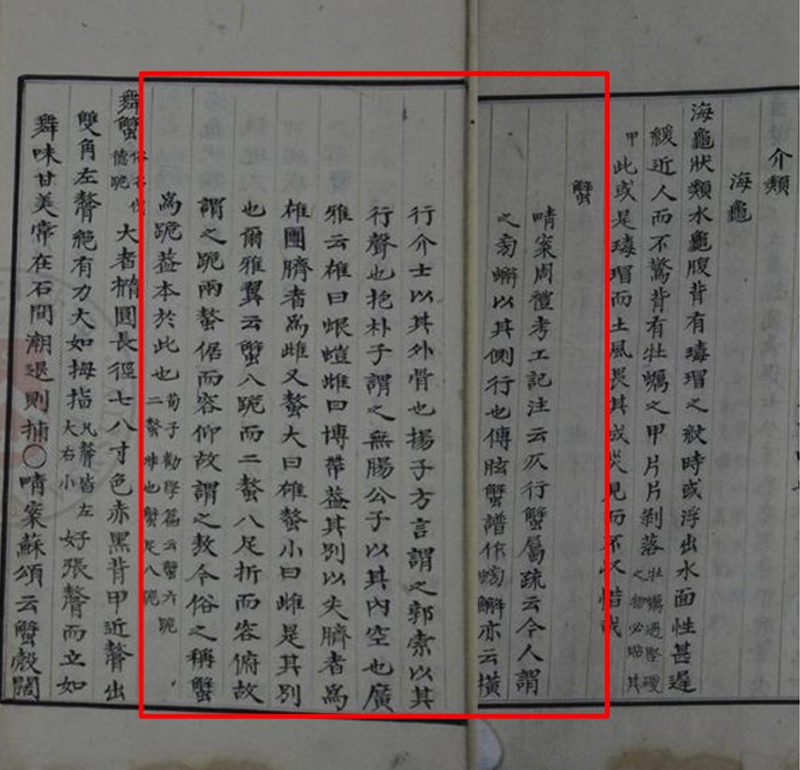 介類
海龜
海龜狀類水龜腹背有瑇瑁之紋時或浮出水面性甚遲
緩近人而不驚背有牡蠣之甲片片剝落牡蠣遇堅硬之物必貼其
甲此或是瑇瑁而土風畏其成災見而不以惜哉
蟹
晴案周禮考工記注云仄行蟹屬疏云今人謂
之蠏以其側行也傅肱蟹譜作螃蠏亦云橫
行介士以其外骨也揚子方言謂之郭索以其
行聲也抱朴子謂之無腸公子以其內空也廣
雅云雄曰蜋螘雌曰博帶葢其別以尖臍者爲
雄團臍者爲雌又螯大曰雄螯小曰雌是其別
也爾雅翼云蟹八跪而二螯八足折而容俯故
謂之跪兩螯倨而容仰故謂之敖今俗之稱蟹
爲跪葢本於此也荀子勸學篇云蟹六跪二螯非也蟹足八跪
舞蟹俗名德跪大者橢圓長徑七八寸色赤黑背甲近螯出
雙角左螯絶有力大如拇指凡螯皆左大右小好張螯而立如
舞味甘美常在石間潮退則捕〇晴案蘇頌云蟹殼闊